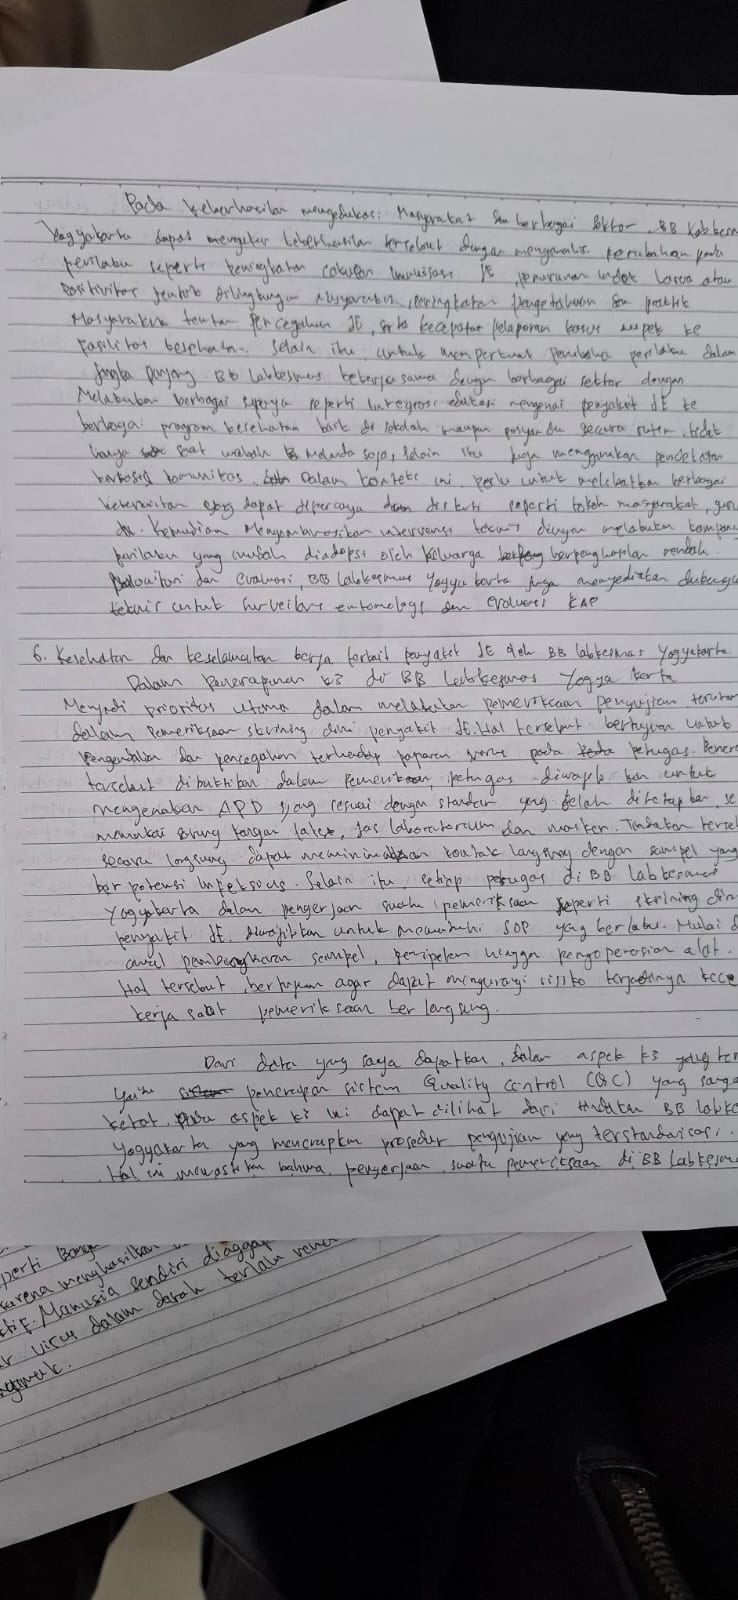 Pada keberhasilan mengedukasi Masyarakat dan berbagai sektor, BB Labkesm
Yogyakarta dapat mengukur keberhasilan tersebut dengan menganalisis perubahan pada
perilaku seperti peningkatan cakupan imunisasi JE, penurunan indek larva atau
positivitas jentik dilingkungan Masyarakat, peningkatan pengetahuan dan praktik
Masyarakat tentan pencegahan JE, serta kecepatan pelaporan kasus suspek ke
Fasilitas kesehatan. Selain itu, untuk memperkuat perubahan perilaku dalam
jangka panjang. BB Labkesmas bekerja sama dengan berbagai sektor dengan
Melakukan berbagai upaya seperti Integrasi edukasi mengenai penyakit JE ke
berbagai program kesehatan baik di sekolah maupun posyandu secara rutin, tidak
hanya saat wabah Melanda saja, Selain itu juga menggunakan pendekatan
berbasis komunitas. Dalam konteks ini, perlu untuk melibatkan berbagai
yang dapat dipercaya dan diikuti seperti tokoh masyarakat, guru
dll. Kemudian Mengombinasikan intervensi teknis dengan melakukan kampany
perilaku yang mudah diadopsi oleh keluarga berpenghasilan rendah.
dan evaluasi, BB Labkesmas Yogyakarta juga menyediakan dukunga
teknis untuk surveilans entomologi dan evaluasi KAP
6. Kesehatan dan keselamatan kerja terkait penyakit JE oleh BB labkesmas Yogyakarta.
Dalam Penerapan K3 di BB Labkesmas Yogyakarta
Menjadi prioritas utama dalam melakukan pemeriksaan pengujian terutam
dalam pemeriksaan skrining dini penyakit JE. Hal tersebut bertujuan untuk
pengendalian dan pencegahan terhadap paparan virus pada petugas. Penera
tersebut dibuktikan dalam Pemeriksaan, petugas diwajibkan untuk
mengenakan APD yang sesuai dengan standar yang telah ditetapkan, se
memakai sarung tangan latex, jas laboratorium dan masker. Tindakan terse
secara langsung dapat meminimalkan kontak langsung dengan sampel yang
berpotensi Infeksius. Selain itu, setiap petugas di BB labkesmas
Yogyakarta dalam pengerjaan suatu pemeriksaan seperti skrining din
penyakit JE. diwajibkan untuk mematuhi SOP yang berlaku. Mulai d
awal pembongkaran sampel, pemipetan hingga pengoperasian alat.
Hal tersebut bertujuan agar dapat mengurangi risiko terjadinya kece
kerja saat pemeriksaan berlangsung.
Dari data yang saya dapatkan, dalam aspek K3 yang ter
penerapan sistem Quality Control (QC) yang sanga
ketat. Pada aspek K3 ini dapat dilihat dari tindakan BB labke
Yogyakarta yang menerapkan prosedur pengujian yang terstandarisasi.
Hal ini memastikan bahwa, pengerjaan suatu pemeriksaan di BB Labkesm
perti
karena menghasilkan
Manusia sendiri diangga
virus dalam darah terlalu rend